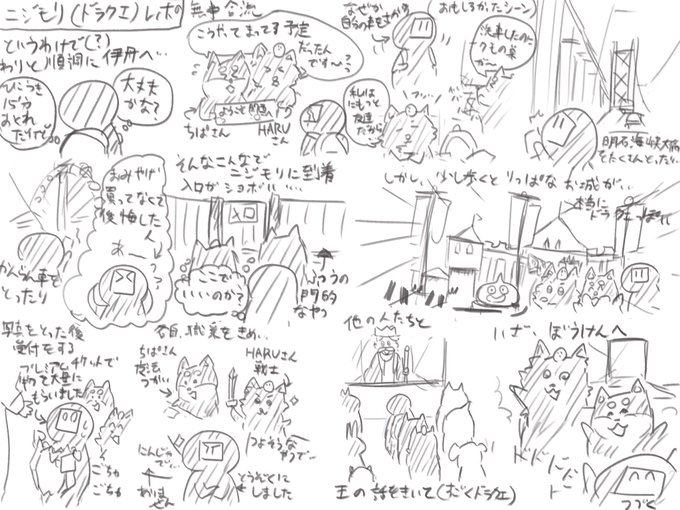 ニジモリ(ドラクエ)レポの
というわけで(?)
わりと順調に伊丹へ…
ひこうき
15分
おくれ
たけど
大丈夫
かな?
無事合流
こうやってまってる予定
だったん
ですヘ~?っ
ちぱさん
HARU
さん
なぜか
おもしろかったシーン
洗車したのに
クモの巣
がー
私は
にもつと
友達
だから
明石海峡大橋
をたくさんとったり…
かんらん車を
とったり
おみやげ
買ってなくて
後悔した
り
あーっ
そんなこんなで
ニジモリに到着
入口がショボい…
入口
ここで
いいのか?
ふつうの
門的
なやつ
しかし、少し歩くとりっぱなお城が…
本当に
ドラクエっぽい
写真をとった後
受付をする
プレミアムチケットで
物を大量に
もらいました
ごちゃ
ごちゃ
名前、職業をきめ…
ちぱさん
魔法
つかい
HARUさん
戦士
つよそうな
やつで…
にんじゃ
で…
とうぞくに
しました
他の人たちと
王の話をきいて(すごくドラクエ)
いざ、ぼうけんへ
ドドドドド
つづく